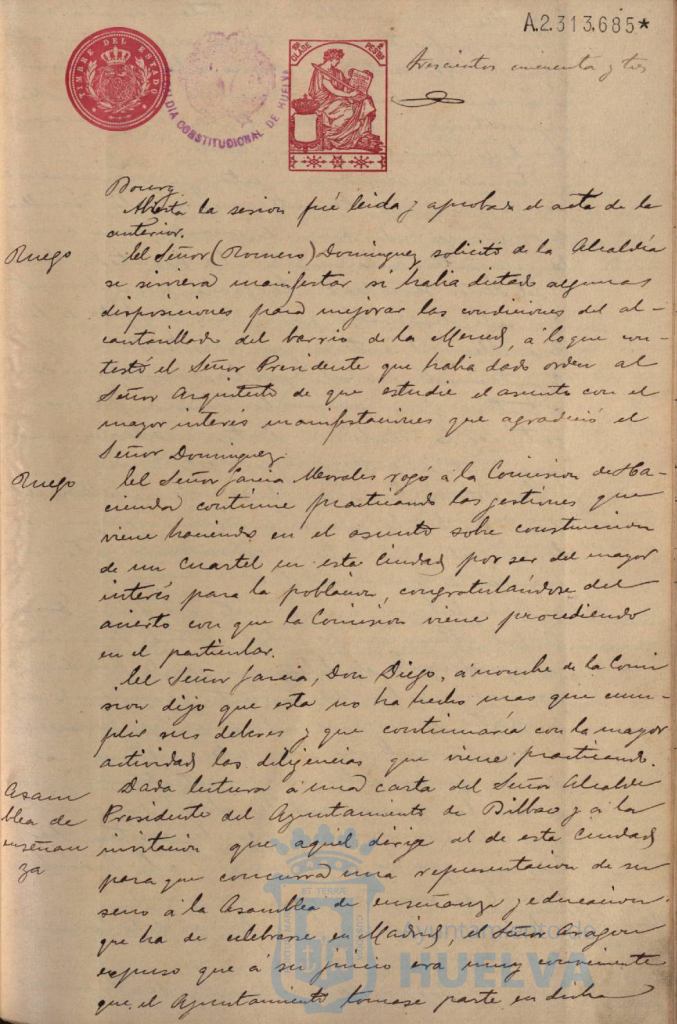 A.2.313.685*
TIMBRE DEL ESTADO
ALCALDIA CONSTITUCIONAL DE HUELVA
CLASE PESETAS
trescientos cincuenta y tres
Abierta la sesion fué leida y aprobada el acta de la
anterior.
Ruego
El Señor (Romero) Dominguez solicitó de la Alcaldía
se sirviera manifestar si habia dictado algunas
disposiciones para mejorar las condiciones del al-
cantarillado del barrio de la Merced, á lo que con-
testó el Señor Presidente que habia dado orden al
Señor Arquitecto de que estudie el asunto con el
mayor interés manifestaciones que agradeció el
Señor Dominguez.
Ruego
El Señor Garcia Morales rogó á la Comision de Ha-
cienda continue practicando las gestiones que
viene haciendo en el asunto sobre construccion
de un Cuartel en esta Ciudad por ser del mayor
interés para la poblacion, congratulándose del
acierto con que la Comision viene procediendo
en el particular.
El Señor Garcia, Don Diego, á nombre de la Comi
sion dijo que esta no ha hecho mas que cum-
plir sus deberes y que continuaría con la mayor
actividad las diligencias que viene practicando.
Asam
blea de
enseñan
za
Dada lectura á una carta del Señor Alcalde
Presidente del Ayuntamiento de Bilbao y á la
invitacion que aquel dirige al de esta Ciudad
para que concurra una representacion de su
seno á la Asamblea de enseñanza y educacion
que ha de celebrarse en Madrid, el Señor Aragon
expuso que á su juicio era muy conveniente
que el Ayuntamiento tomase parte en dicha
Ayuntamiento de
HUELVA